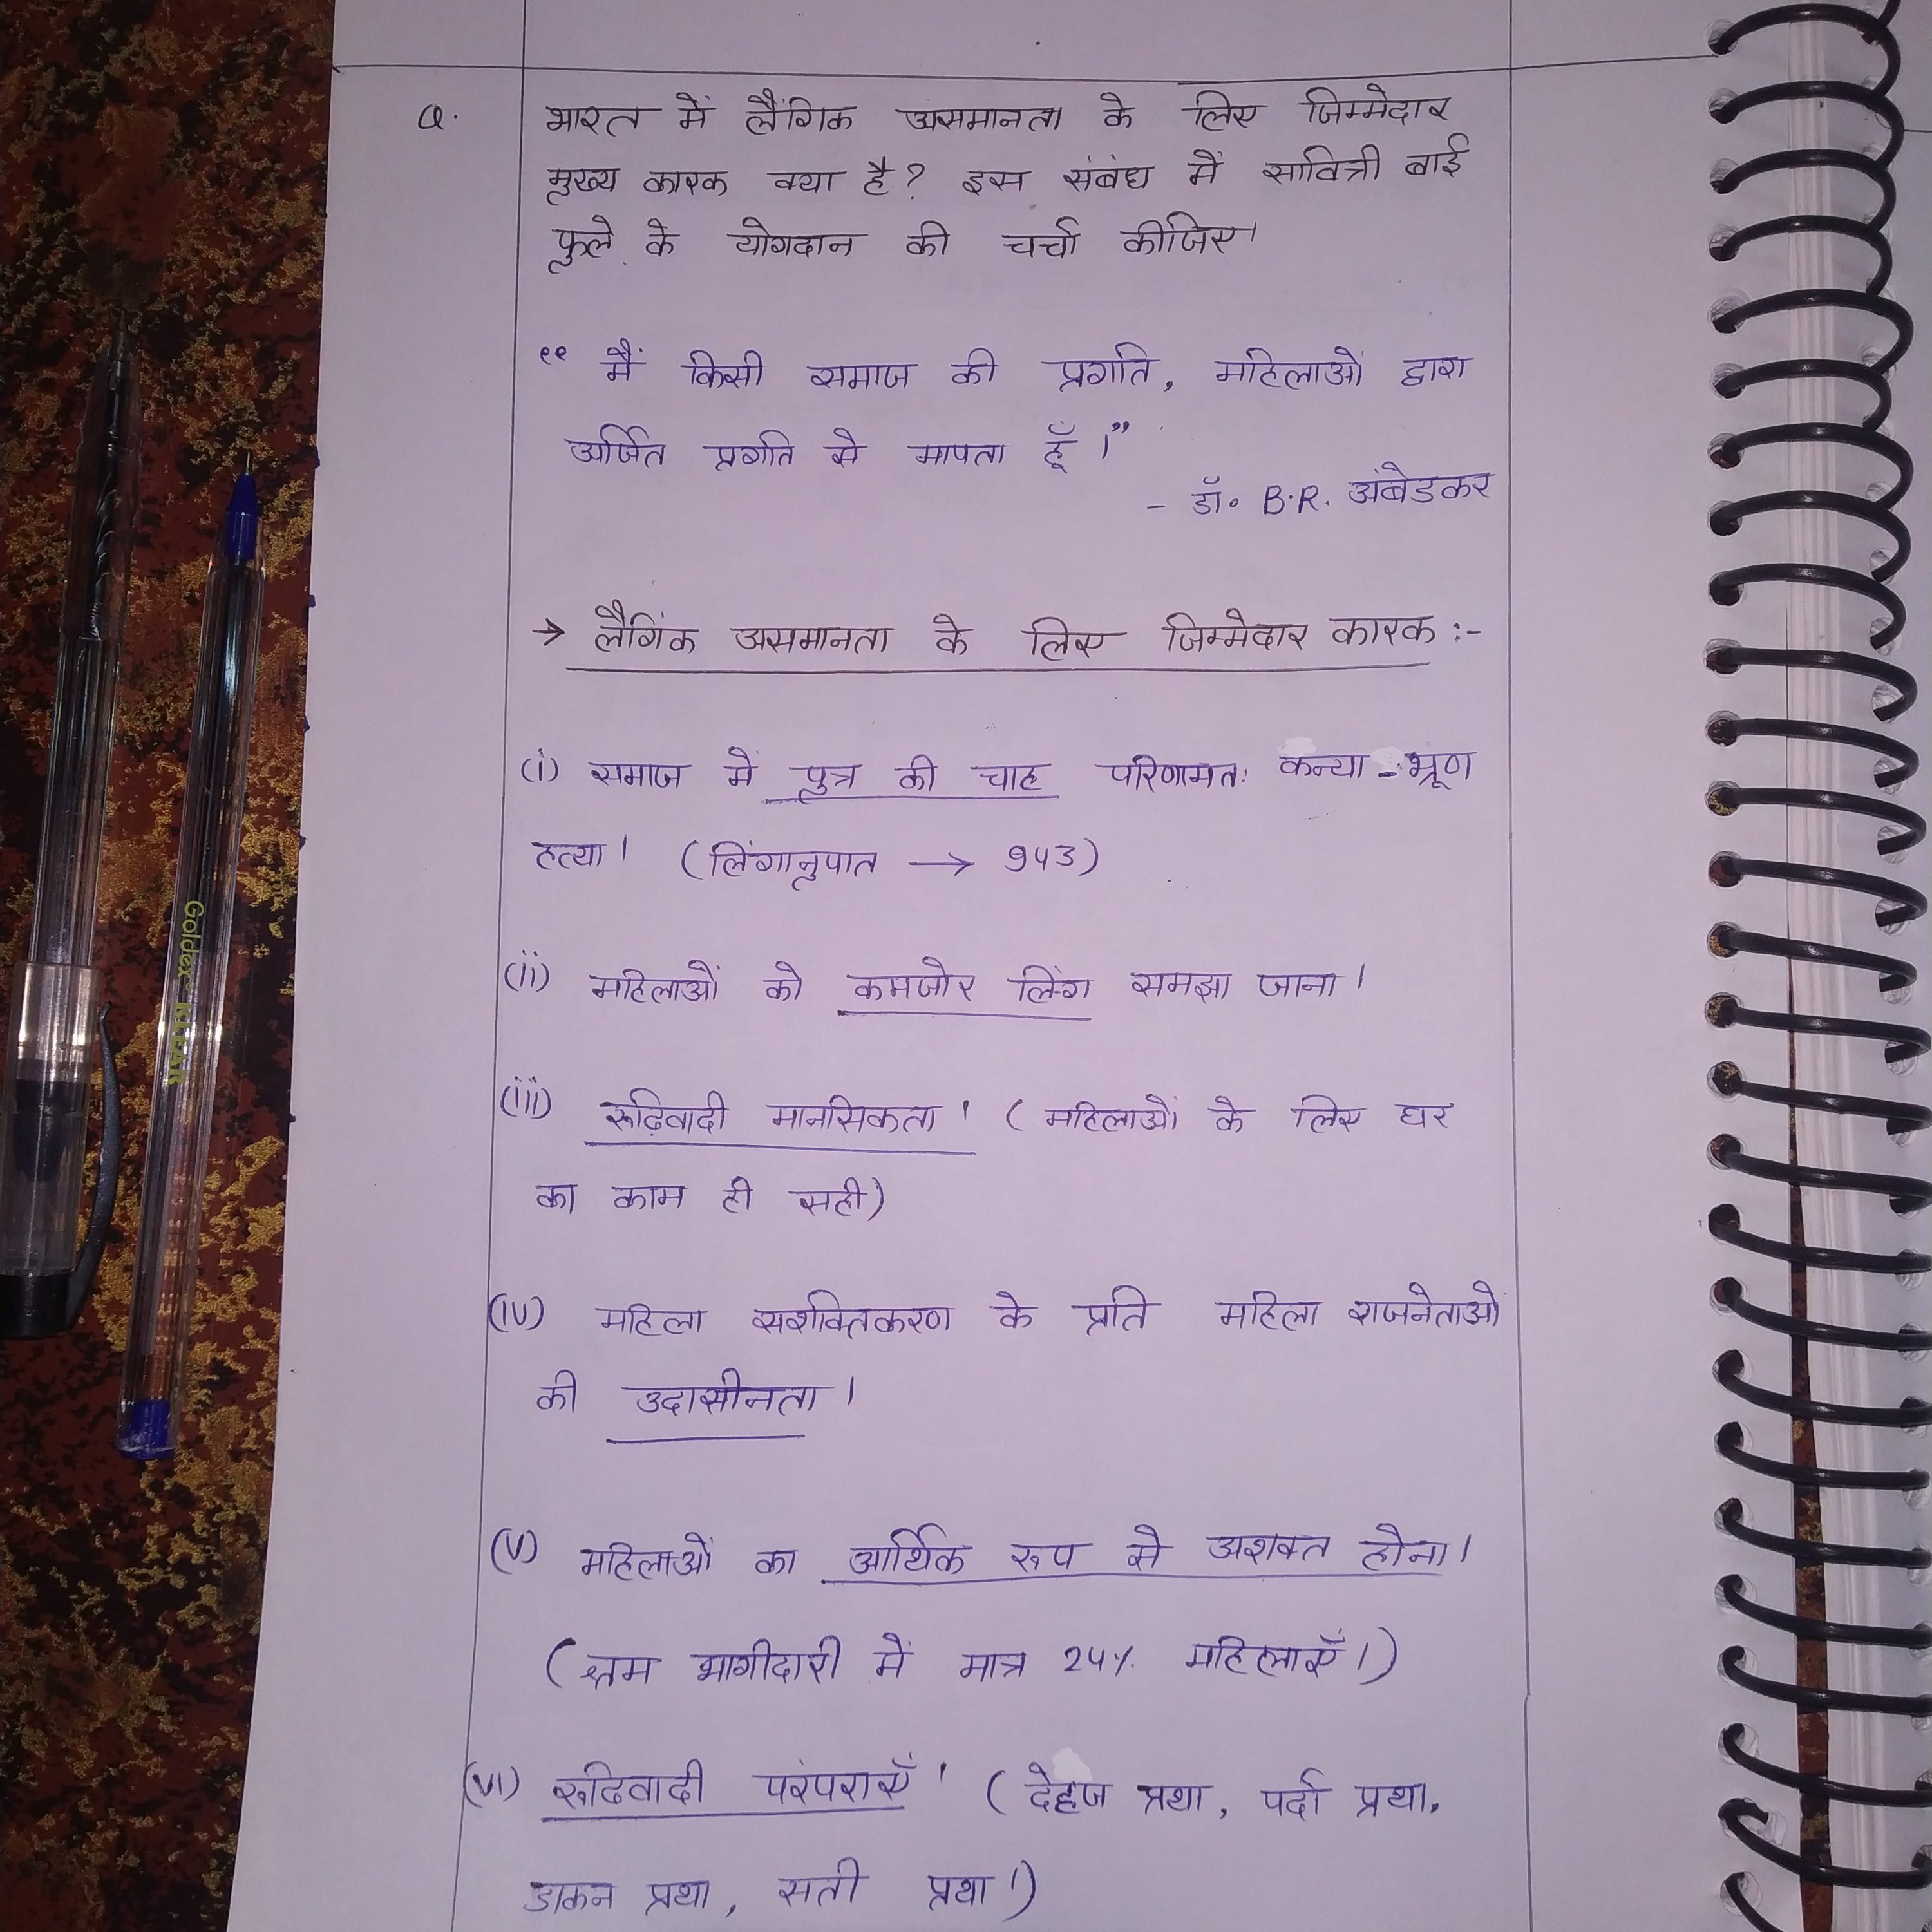 Q. भारत में लैंगिक असमानता के लिए जिम्मेदार
मुख्य कारक क्या है? इस संबंध में सावित्री बाई
फुले के योगदान की चर्चा कीजिए।
“ मैं किसी समाज की प्रगति, महिलाओं द्वारा
अर्जित प्रगति से मापता हूँ।”
- डॉ॰ B.R. अंबेडकर
→ लैगिंक असमानता के लिए जिम्मेदार कारक :-
(i) समाज में पुत्र की चाह परिणामतः कन्या-भ्रूण
हत्या। (लिंगानुपात → 943)
(ii) महिलाओं को कमजोर लिंग समझा जाना।
(iii) रूढ़िवादी मानसिकता। (महिलाओं के लिए घर
का काम ही सही)
(iv) महिला सशक्तिकरण के प्रति महिला राजनेताओं
की उदासीनता।
(v) महिलाओं का आर्थिक रूप से अशक्त होना।
(श्रम भागीदारी में मात्र 24% महिलाएँ।)
(vi) रूढिवादी परंपराएँ। (देहज प्रथा, पर्दा प्रथा,
डाकन प्रथा, सती प्रथा।)
Goldex KLEAR